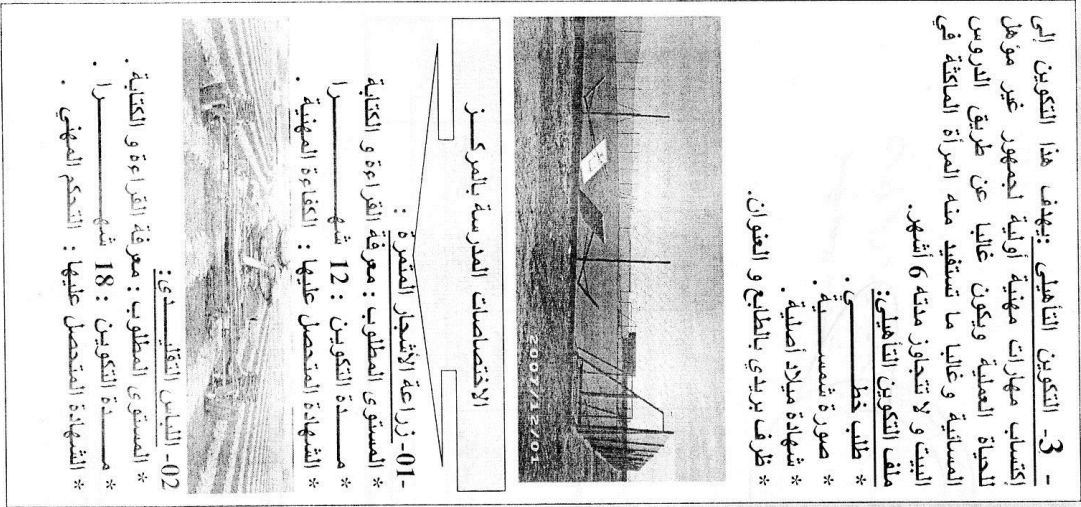 - 3- التكوين التأهيلي :يهدف هذا التكوين إلى
إكتساب مهارات مهنية أولية لجمهور غير مؤهل
للحياة العملية ويكون غالبا عن طريق الدروس
المسائية وغالبا ما تستفيد منه المرأة الماكثة في
البيت و لا تتجاوز مدته 6 أشهر.
ملف التكوين التأهيلي:
* طلب خطـــــــــي .
* صورة شمســــــية .
* شهادة ميلاد أصلية .
* ظرف بريدي بالطابع و العنوان.
2007/12/01
الاختصاصات المدرسة بالمركــز
-01- زراعة الأشجار المثمرة :
* المستوى المطلوب : معرفة القراءة و الكتابة
* مـــــدة التكوين : 12 شهـــــــــرا
* الشهادة المتحصل عليها : الكفاءة المهنية .
02- اللباس التقليـــــدي:
* المستوى المطلوب : معرفة القراءة و الكتابة .
* مـــــدة التكوين : 18 شهـــــــــرا .
* الشهادة المتحصل عليها : التحكم المهني .